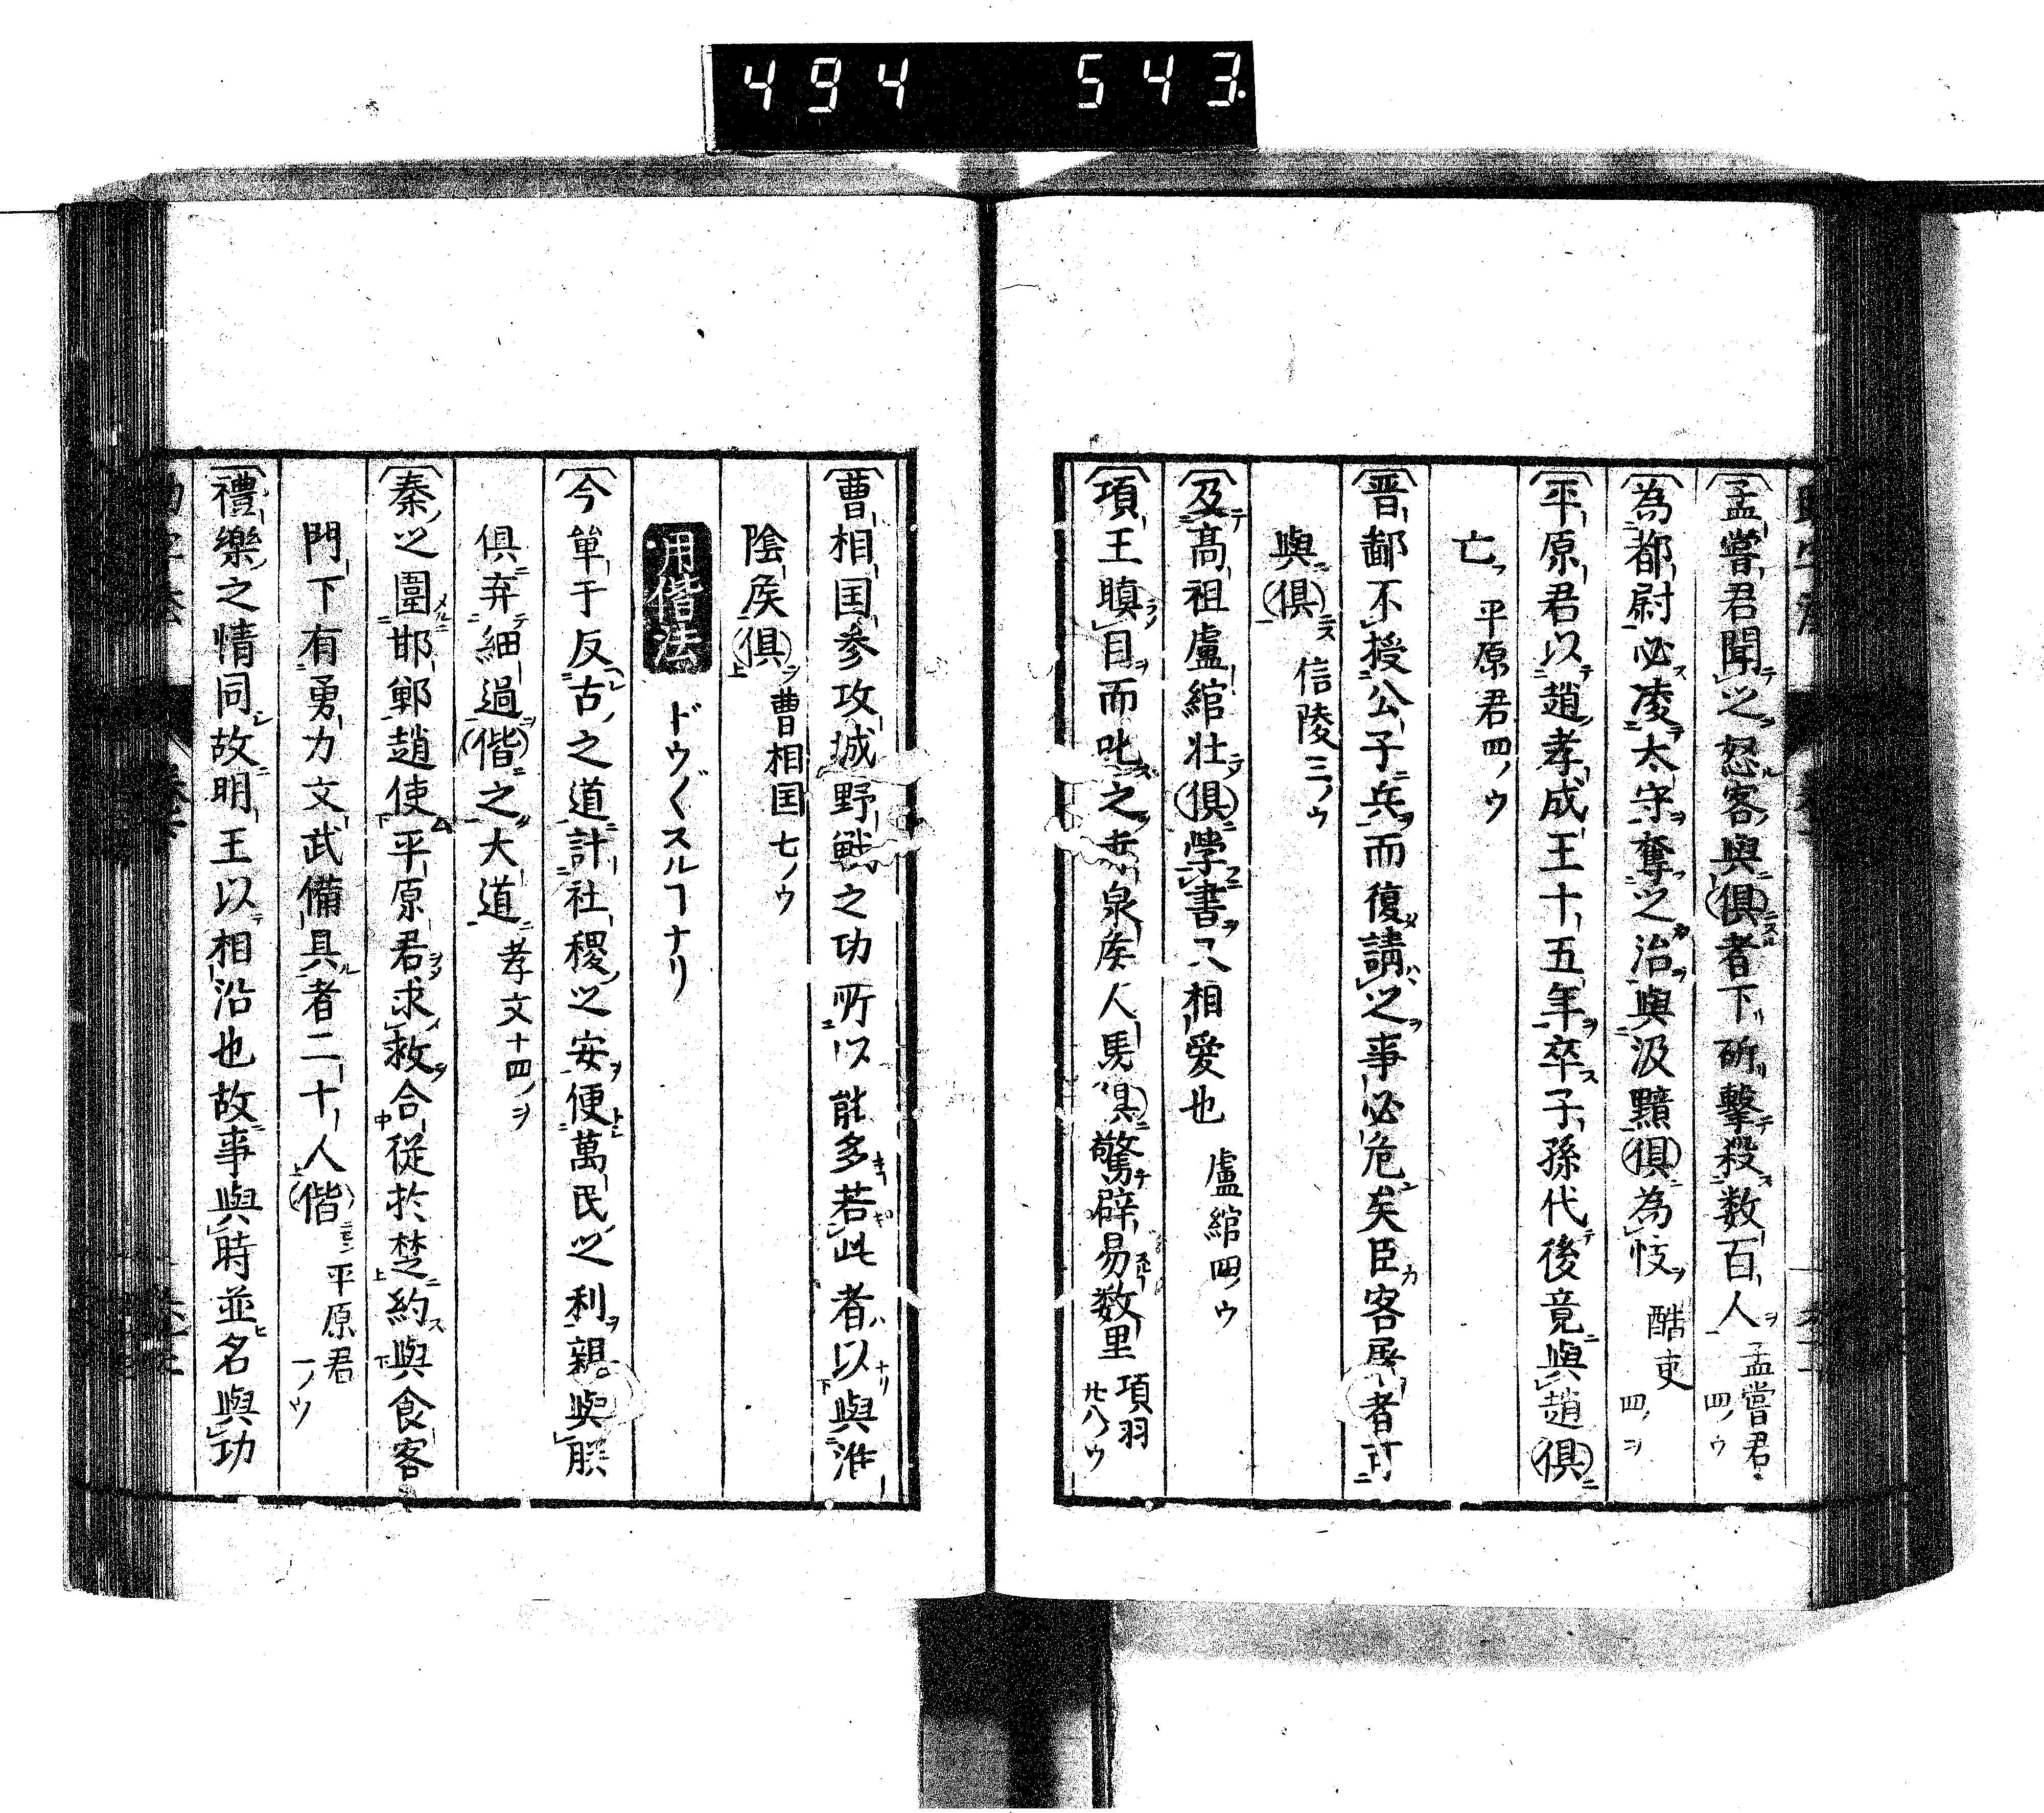 494 543.
孟嘗君聞之怒客與俱者下斫擊殺数百人 孟嘗君四ノウ
為都尉必凌太守奪之治與汲黯俱為忮 酷吏四ノヲ
平原君以趙孝成王十五年卒子孫代後竟與趙俱
亡 平原君四ノウ
晋鄙不授公子兵而復請之事必危矣臣客屠者可
與俱 信陵三ノウ
及高祖盧綰壮俱學書又相愛也 盧綰四ノウ
項王瞋目而叱之赤泉矦人馬俱驚辟易数里 項羽廿八ノウ
曹相国参攻城野戦之功所以能多若此者以與淮
陰矦俱 曹相国七ノウ
用偕法 ドウ〲スルヿナリ
今單于反古之道計社稷之安便萬民之利親與朕
俱弃細過偕之大道 孝文十四ノヲ
秦之圍邯鄲趙使平原君求救合從於楚約與食客
門下有勇力文武備具者二十人偕 平原君一ノウ
禮樂之情同故明王以相沿也故事與時並名與功